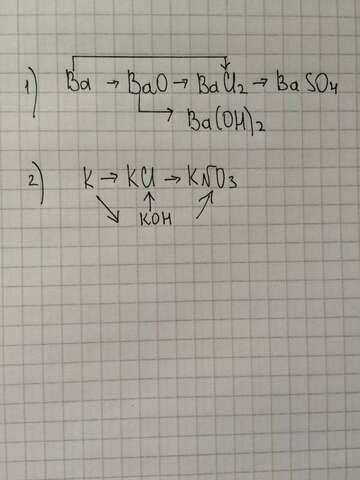 1) Ba → BaO → BaCl2 → BaSO4
Ba(OH)2
2) K → KCl → KNO3
KOH